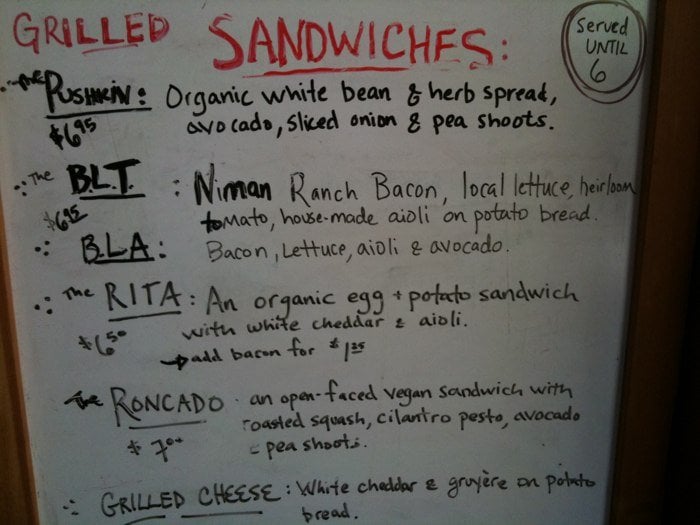 GRILLED SANDWICHES:
Served
UNTIL
6
The PUSHKIN: Organic white bean & herb spread,
$6.95 avocado, sliced onion & pea shoots.
The B.L.T. : Niman Ranch Bacon, local lettuce, heirloom
$6.95 tomato, house-made aioli on potato bread.
B.L.A: Bacon, Lettuce, aioli & avocado.
The RITA: An organic egg + potato sandwich
$6.50 with white cheddar & aioli.
→ add bacon for $1.25
The RONCADO - an open-faced vegan sandwich with
roasted squash, cilantro pesto, avocado
$7.00 - pea shoots.
GRILLED CHEESE: White cheddar & gruyère on potato
bread.